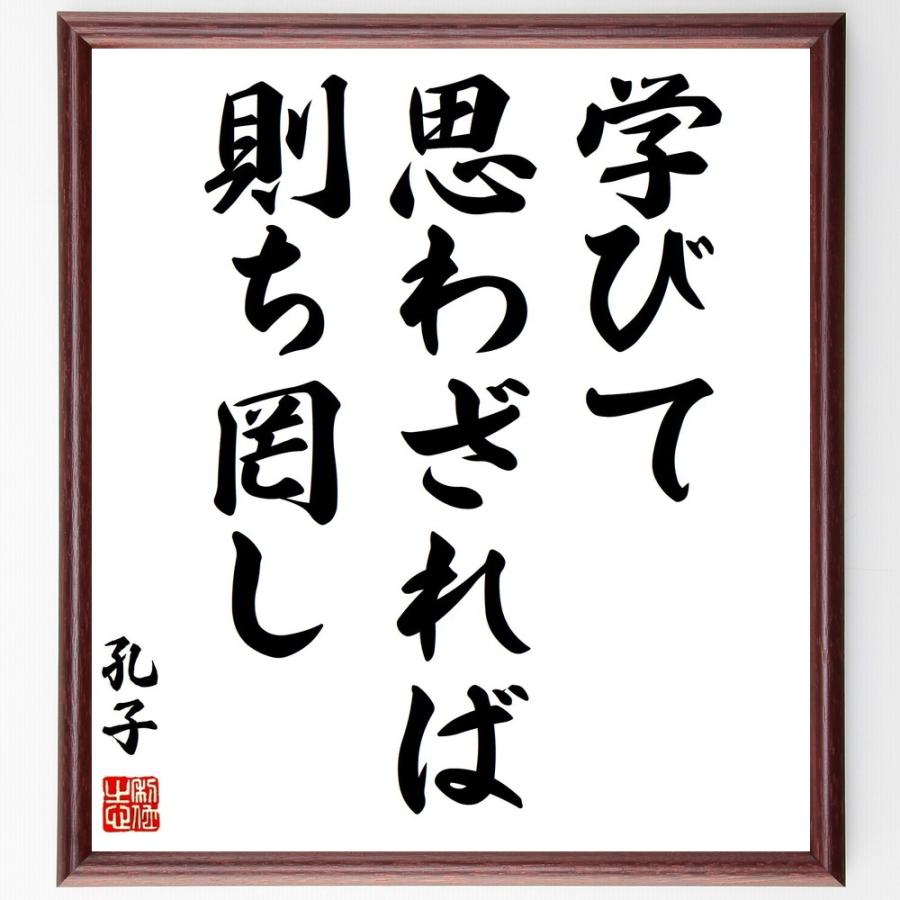 学びて
思わざれば
則ち罔し
孔子